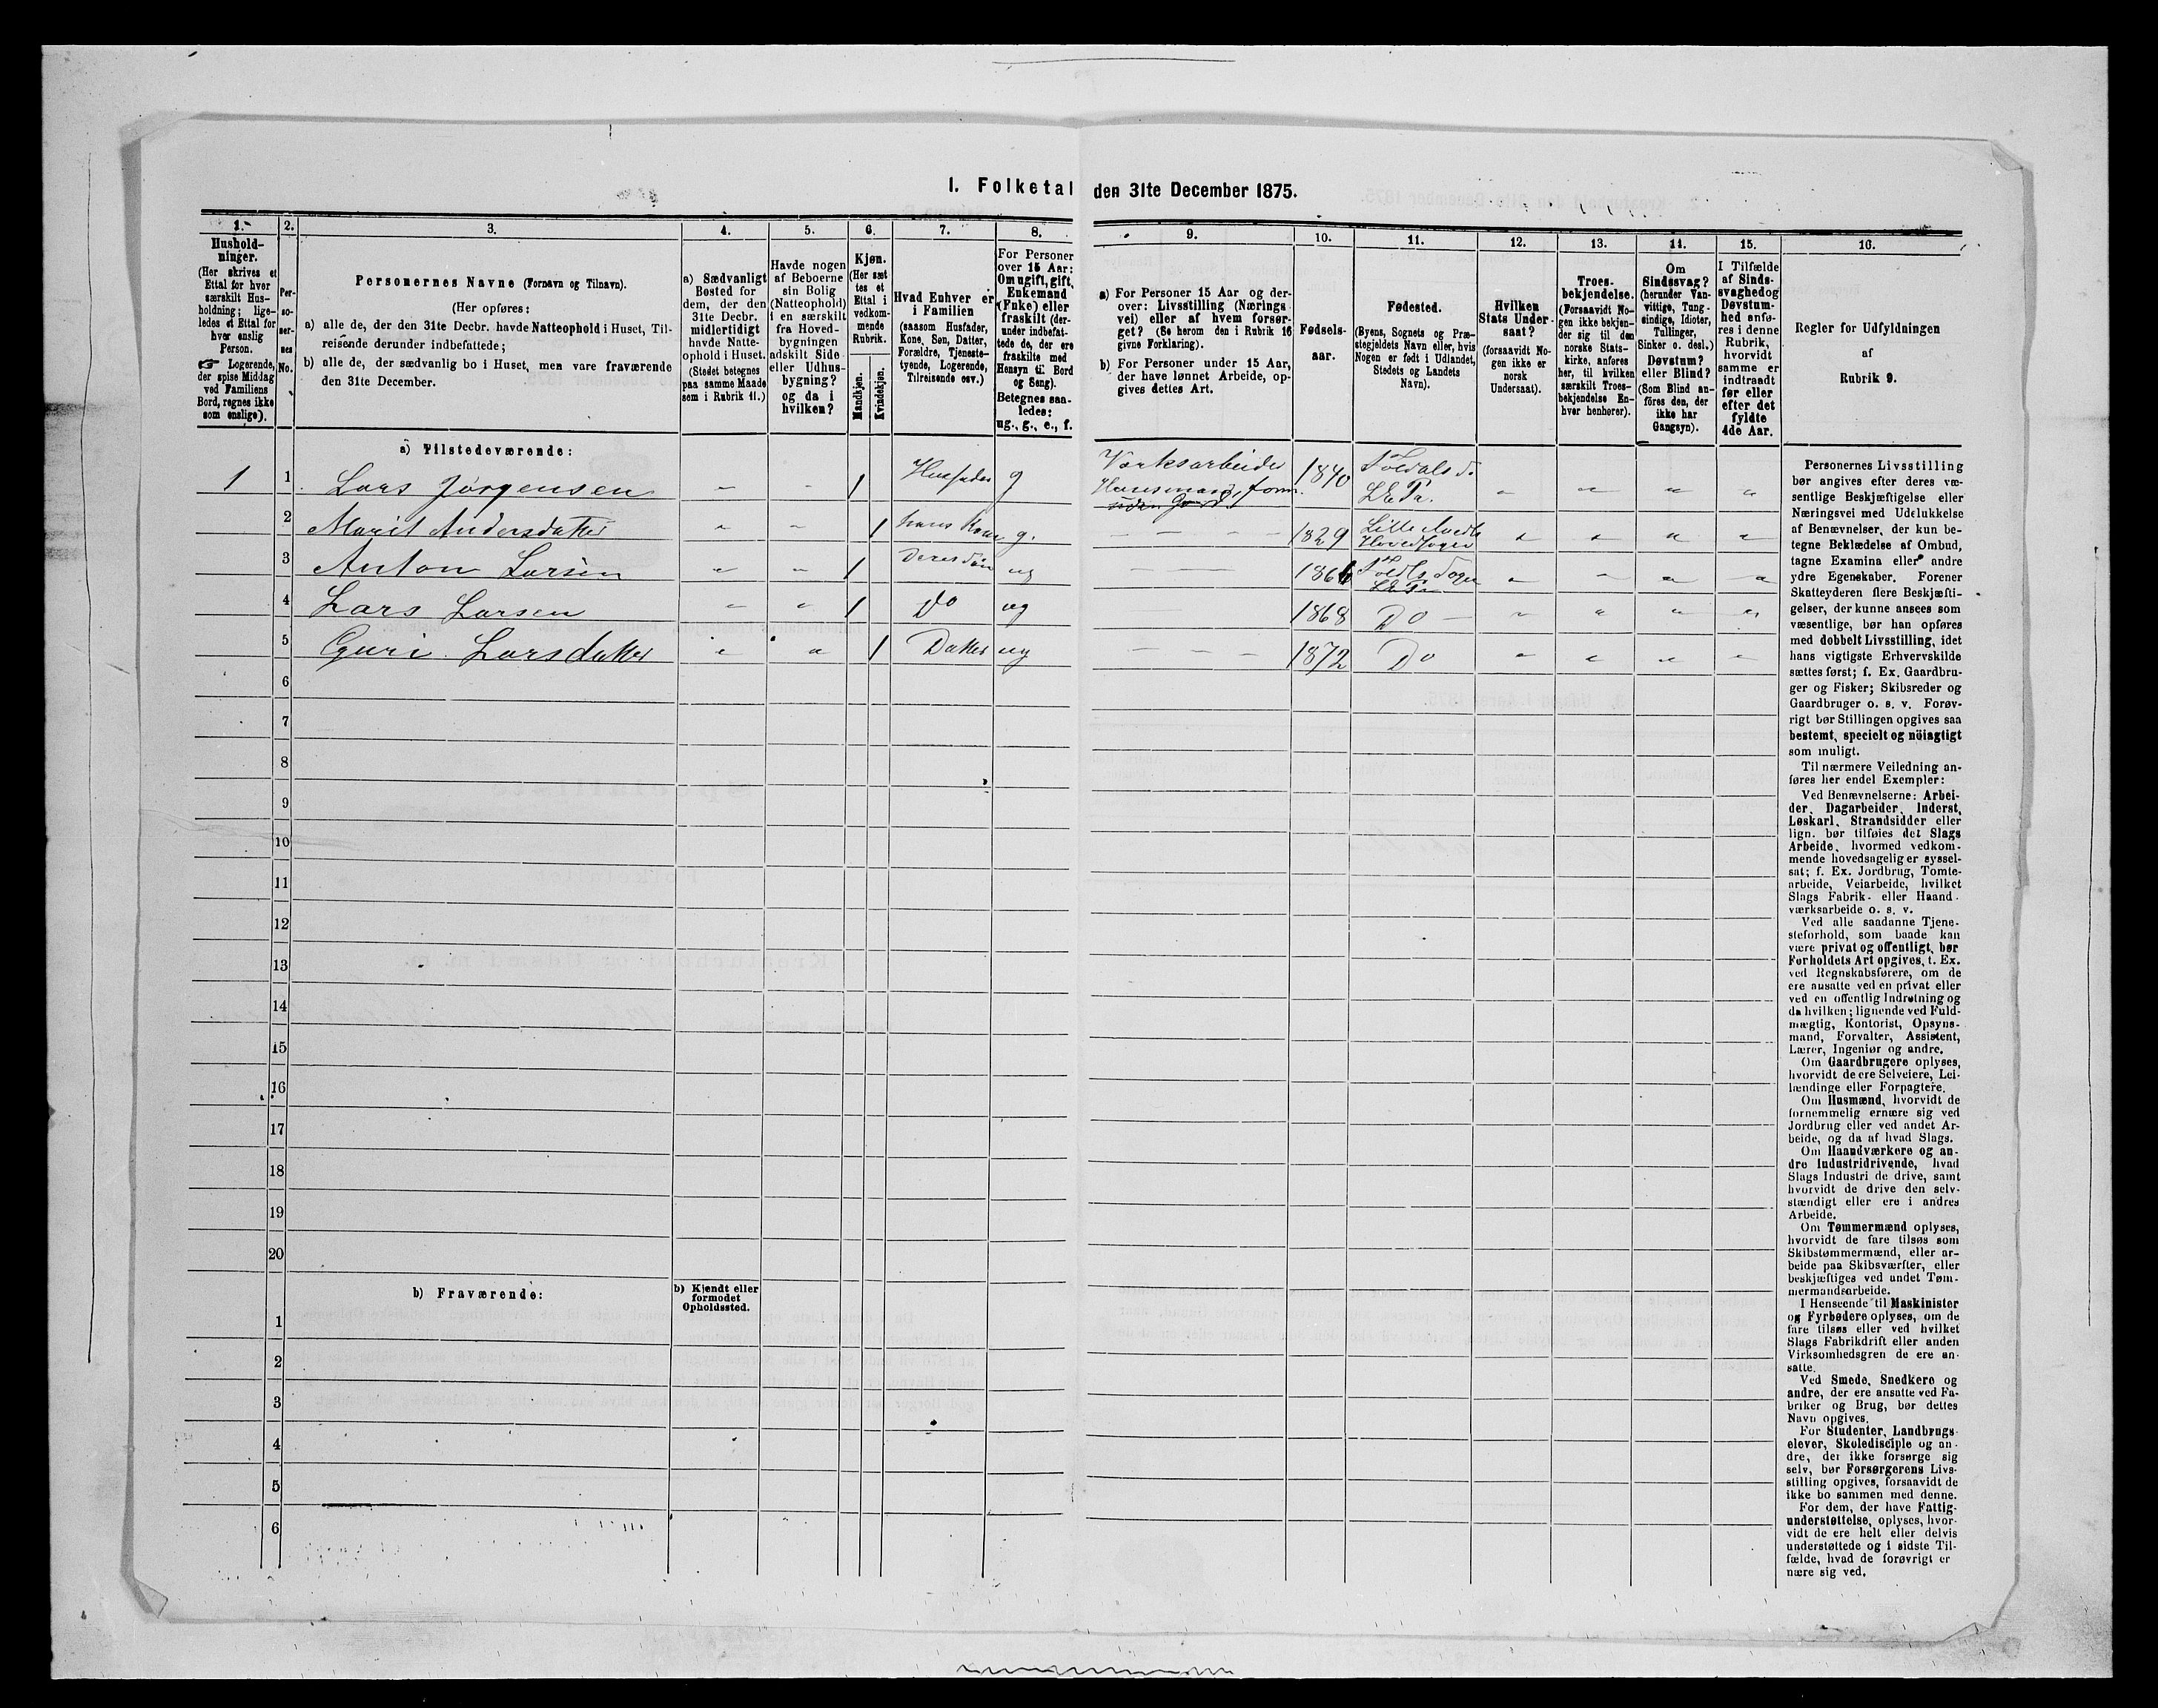 I. Folketal den 31te December 1875.
1.
Hushold-
ninger.
(Her skrives et
Ettal for hver
særskilt Hus-
holdning; lige-
ledes et Ettal for
hver enslig
Person.
☞ Logerende,
der spise Middag
ved Familiens
Bord, regnes ikke
som enslige).
2.
Per-
so-
ner-
nes
No.
3.
Personernes Navne (Fornavn og Tilnavn).
(Her opføres:
a) alle de, der den 31te Decbr. havde Natteophold i Huset, Til-
reisende derunder indbefattede;
b) alle de, der sædvanlig bo i Huset, men vare fraværende
den 31te December.
4.
a) Sædvanligt
Bosted for
dem, der den
31te Decbr.
midlertidigt
havde Natte-
ophold i Huset.
(Stedet betegnes
paa samme Maade
som i Rubrik 11.)
5.
Havde nogen
af Beboerne
sin Bolig
(Natteophold)
i en særskilt
fra Hoved-
bygningen
adskilt Side
eller Udhus-
bygning?
og da i
hvilken?
6.
Kjøn.
(Her sæt
tes et
Ettal i
vedkom-
mende
Rubrik.
Mandkjøn.
Kvindekjøn.
7.
Hvad Enhver er
i Familien
(saasom Husfader,
Kone, Søn, Datter,
Forældre, Tjeneste-
tyende, Logerende,
Tilreisende osv.)
8.
For Personer
over 15 Aar:
Om ugift, gift,
Enkemand
(Enke) eller
fraskilt (der-
under indbefat-
tede de, der ere
fraskilte med
Hensyn til Bord
og Seng).
Betegnes saa-
ledes:
ug., g., e., f.
9.
a) For Personer 15 Aar og der-
over: Livsstilling (Nærings
vei) eller af hvem forsør-
get? (Se herom den i Rubrik 16
givne Forklaring).
b) For Personer under 15 Aar,
der have lønnet Arbeide, op-
gives dettes Art.
10.
Fødsels-
aar.
11.
Fødested.
(Byens, Sognets og Præ-
stegjeldets Navn eller, hvis
Nogen er født i Udlandet,
Stedets og Landets
Navn).
12.
Hvilken
Stats Under-
saat?
(forsaavidt No-
gen ikke er
norsk
Undersaat).
13.
Troes-
bekjendelse.
(Forsaavidt No-
gen ikke bekjen-
der sig til den
norske Stats-
kirke, anføres
her, til hvilken
særskilt Troes-
bekjendelse En-
hver henhører).
14.
Om
Sindssvag?
(herunder Van-
vittige, Tung-
sindige, Idioter,
Tullinger,
Sinker o. desl.)
Døvstum?
eller Blind?
(Som Blind an-
føres den, der
ikke har
Gangsyn).
15.
I Tilfælde
af Sinds-
svaghed og
Døvstum-
hed anfø-
res i denne
Rubrik,
hvorvidt
samme er
indtraadt
før eller
efter det
fyldte
4de Aar.
16.
Regler for Udfyldningen
af
Rubrik 9.
a) Tilstedeværende:
1 1 Lars Jørgensen 1 Husfader g Værksarbeide 1840
Husmand
2 Marit Andersdatter 1 hans Kone g. 1829 Lille Elvedls Hovedsogn
3 Anton Larsen 1 Deres Søn ug
4 Lars Larsen 1 Do ug 1868 Do
5 Guri Larsdatter 1 Datter ug 1872 Do
6
7
8
9
10
11
12
13
14
15
16
17
18
19
20
b) Fraværende:
b) Kjendt eller
formodet
Opholdssted.
1
2
3
4
5
6
Personernes Livsstilling
bør angives efter deres væ-
sentlige Beskjæftigelse eller
Næringsvei med Udelukkelse
af Benævnelser, der kun be-
tegne Beklædelse af Ombud,
tagne Examina eller andre
ydre Egenskaber. Forener
Skatteyderen flere Beskjæfti-
gelser, der kunne ansees som
væsentlige, bør han opføres
med dobbelt Livsstilling, idet
hans vigtigste Erhvervskilde
sættes først; f. Ex. Gaardbru-
ger og Fisker; Skibsreder og
Gaardbruger o. s. v. Forøv-
rigt bør Stillingen opgives saa
bestemt, specielt og nöiagtigt
som muligt.
Til nærmere Veiledning an-
føres her endel Exempler:
Ved Benævnelserne: Arbei-
der, Dagarbeider, Inderst,
Løskarl, Strandsidder eller
lign. bør tilføies det Slags
Arbeide, hvormed vedkom-
mende hovedsagelig er syssel-
sat; f. Ex. Jordbrug, Tomte-
arbeide, Veiarbeide, hvilket
Slags Fabrik- eller Haand-
værksarbeide o. s. v.
Ved alle saadanne Tjene-
steforhold, som baade kan
være privat og offentligt, bør
Forholdets Art opgives, t. Ex.
ved Regnskabsførere, om de
ere ansatte ved en privat eller
ved en offentlig Indretning og
da hvilken; lignende ved Fuld-
mægtig, Kontorist, Opsyns-
mand, Forvalter, Assistent,
Lærer, Ingeniør og andre.
Om Gaardbrugere oplyses,
hvorvidt de ere Selveiere, Lei-
lændinge eller Forpagtere.
Om Husmænd, hvorvidt de
fornemmelig ernære sig ved
Jordbrug eller ved andet Ar-
beide, og da af hvad Slags.
Om Haandværkere og an-
dre Industridrivende, hvad
Slags Industri de drive, samt
hvorvidt de drive den selv-
stændigt eller ere i andres
Arbeide.
Om Tømmermænd oplyses,
hvorvidt de fare tilsøs som
Skibstømmermænd, eller ar-
beide paa Skibsværfter, eller
beskjæftiges ved andet Tøm-
mermandsarbeide.
I Henseende til Maskinister
og Fyrbødere oplyses, om de
fare tilsøs eller ved hvilket
Slags Fabrikdrift eller anden
Virksomhedsgren de ere an-
satte.
Ved Smede, Snedkere og
andre, der ere ansatte ved Fa-
briker og Brug, bør dettes
Navn opgives.
For Studenter, Landbrugs-
elever, Skoledisciple og an-
dre, der ikke forsørge sig
selv, bør Forsørgerens Livs-
stilling opgives, forsaavidt de
ikke bo sammen med denne.
For dem, der have Fattig-
understøttelse, oplyses, hvor-
vidt de ere helt eller delvis
understøttede og i sidste Til-
fælde, hvad de forøvrigt er
nære sig ved.